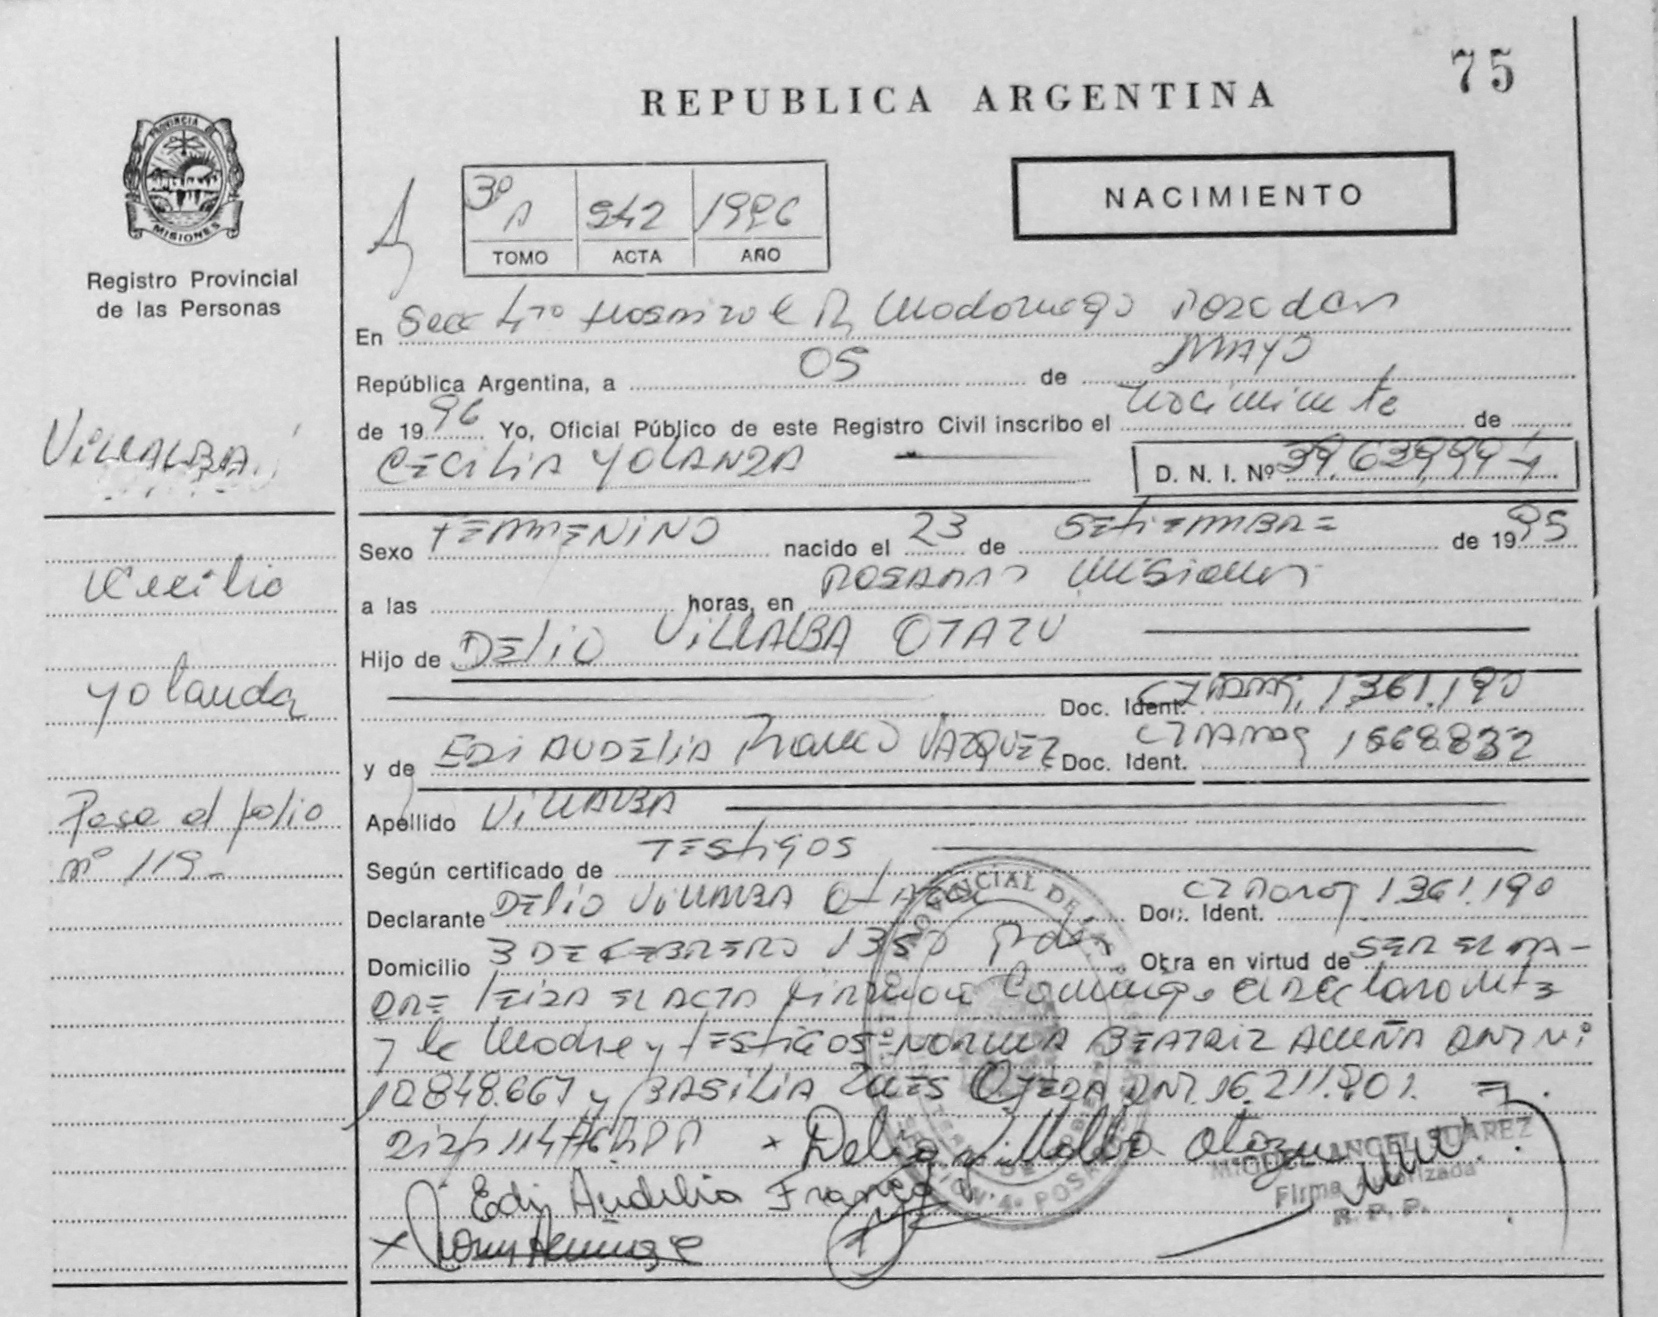 75
REPUBLICA ARGENTINA
PROVINCIA DE
MISIONES
Registro Provincial
de las Personas
NACIMIENTO
3º A 942 1996
TOMO ACTA AÑO
En Secc 4ta Hospital R. Madariaga Posadas
República Argentina, a 05 de MAYO
de 1996 Yo, Oficial Público de este Registro Civil inscribo el nacimiento de
VILLALBA
CECILIA YOLANDA D. N. I. Nº 39.639.994
Sexo FEMENINO nacido el 23 de SETIEMBRE de 1995
Cecilia
a las horas, en POSADAS Misiones
Hijo de DELIO VILLALBA OTAZU
Yolanda
Doc. Ident. 1361.190
y de EDI AUDELIA Franco VAZQUEZ Doc. Ident. 1668.832
Pase al folio
nº 119-
Apellido VILLALBA
Según certificado de TESTIGOS
Declarante DELIO VILLALBA OTAZU Doc. Ident. 1361.190
Domicilio 3 DE FEBRERO 1350 Obra en virtud de SER EL PA-
DRE leida EL ACTA firman conmigo el declarante
y la Madre y TESTIGOS NORMA BEATRIZ ACUÑA DNI Nº
10848.667 y BASILIA INES OJEDA DNI. 16.211.801.
x Delio Villalba Otazu
MIGUEL ANGEL SUAREZ
Firma Autorizada
R. P. P.
Edi Audelia Franco